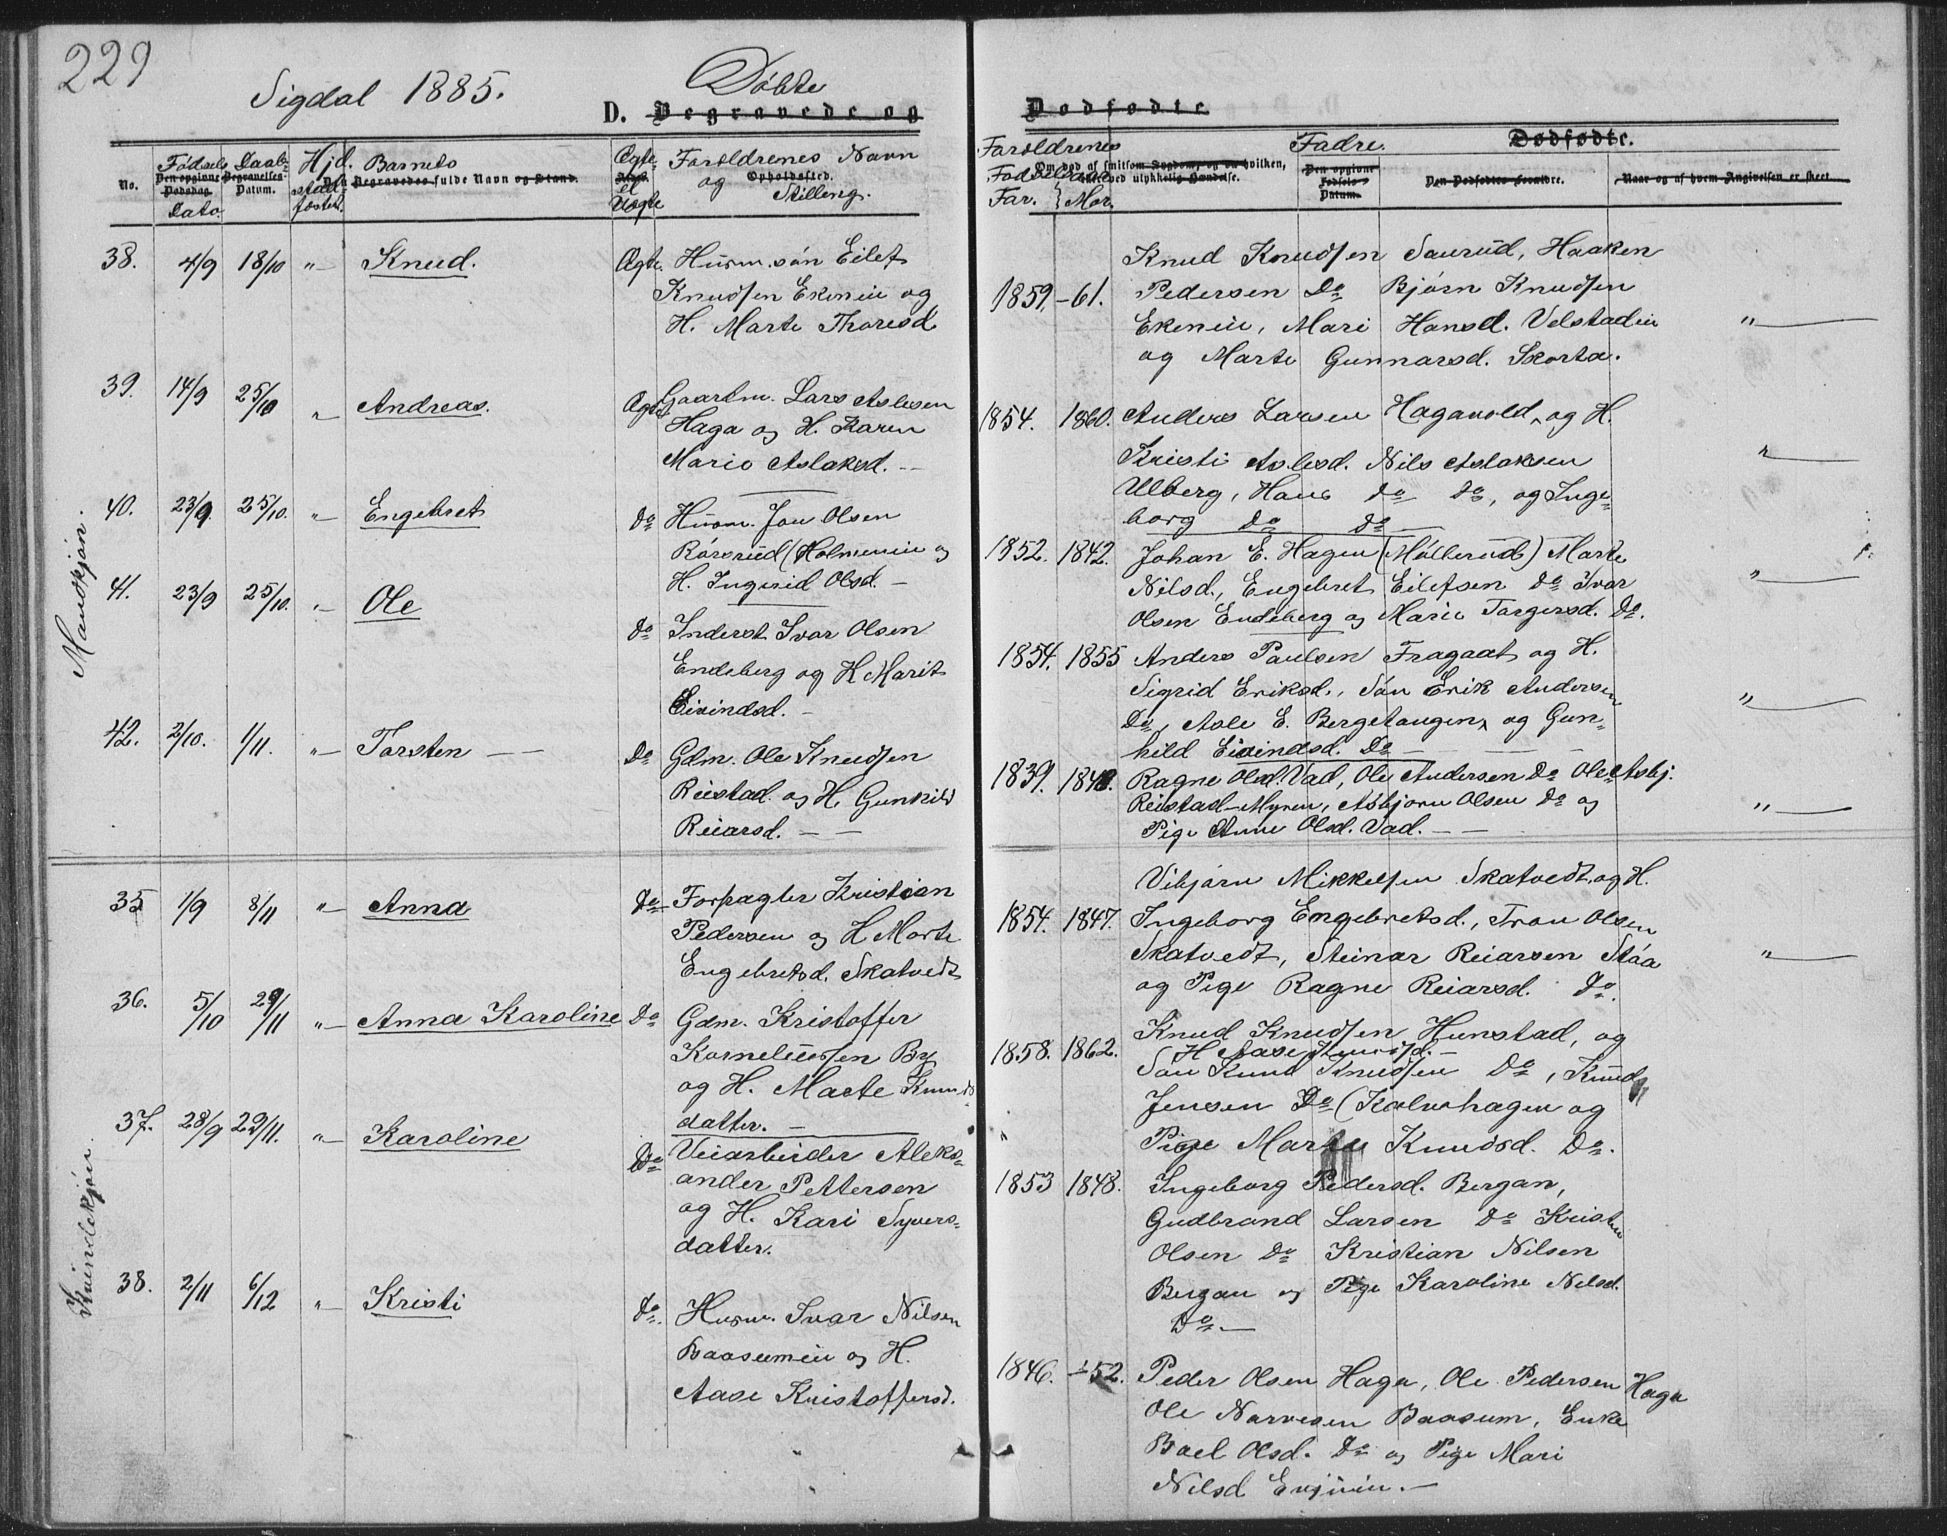 229
Sigdal 1885.
Døbte
D. Begravede og
Dødfødte.
No.
Fødsels
Den opgivne Dødsdag.
Dato
Daabs
Begravelses-
Datum.
Hjd.
stad
fæstet.
Barnets
Den Begravedes fulde Navn og Stand.
Ægte
el
Uægte
Forældrenes Navn
og Opholdssted.
Stilling.
Forældrenes
Fødselsaar
Far. Mor.
Om død af smitsom Sygdom, og da hvilken,
eller ved ulykkelig Hændelse.
Fadre.
Dødfødte.
Den opgivne
Fødsels-
Datum.
Den Dødfødtes Forældre.
Naar og af hvem Angivelsen er skeet.
Mandkjøn.
38. 4/9 18/10 " Knud. Ægte. Husm. søn Eilef
Knudsen Ekenin og
H. Marte Thoresd.
1859. -61. Knud Knudsen Saurud, Haaken
Pedersen Do Bjørn Knudsen
Ekenin, Mari Hansd. Velstadin
og Marte Gunnarsd. Skorta.
"
39. 14/9 25/10 " Andreas. Ægte Gaardm. Lars Aslesen
Haga og H. Karen
Marie Aslaksd. -
1854. 1860. Anders Larsen Hagavold, og H.
Kristi Aslesd. Nils Aslaksen
Ulberg, Hans do do, og Inge-
borg do do
"
40. 23/9. 25/10. " Engebret do Husm. Jon Olsen
Rørsrud (Holmenin og
H. Ingerid Olsd. -
1852. 1842. Johan E. Hagen (Møllerud) Marte
Nilsd., Engebret Eilefsen do Ivar
Olsen Endeberg og Marie Torgersd. Do.
"
41. 23/9 25/10. " Ole do Inderst Ivar Olsen
Endeberg og H. Marit
Eivindsd. -
1854. 1855 Anders Paulsen Fragaat og H.
Sigrid Eriksd., Søn Erik Andersen
Do, Asle E. Bergetangen, og Gun-
hild Eivindsd. Do
"
42. 2/10. 1/11. " Torsten Do Gdm. Ole Knudsen
Reistad. og H. Gunhild
Reiarsd. - -
1839. 1848. Ragne Olsd. Vad, Ole Andersen Do Ole Asbj.
Reistad-Myren, Asbjørn Olsen Do og
Pige Anne Olsd. Vad. - -
"
Kvindekjøn.
35 1/9 8/11 " Anna Do Forpagter Kristian
Pedersen og H. Marte
Engebretsd. Skatvedt
1854. 1847. Vibjørn Mikkelsen Skatvedt, og H.
Ingeborg Engebretsd., Tron Olsen
Skatvedt, Steinar Reiarsen Staa
og Pige Ragne Reiarsd. Do.
"
36. 5/10 29/11 " Anna Karoline Do Gdm. Kristoffer
Korneliussen By
og H. Marte Knuds
datter. -
1858. 1862. Knud Knudsen Hunstad, og
H. Aase Knudsd. -
Søn Knud Knudsen Do, Knud
Jensen Do (Kalvehagen og
Pige Marte Knudsd. Do.
37. 28/9 29/11. " Karoline Do Veiarbeider Aleks-
ander Pettersen
og H. Kari Syvers-
datter.
1853 1848. Ingeborg Pedersd. Bergan,
Gudbrand Larsen Do Kristen
Olsen Do Kristian Nilsen
Bergan og Pige Karoline Nilsd.
Do. -
38. 2/11 6/12 " Kristi Do. Husm. Ivar Nilsen
Baasumin og H.
Aase Kristoffersd.
1846. -52. Peder Olsen Haga, Ole Pedersen Haga
Ole Narvesen Baasum, Enke
Boel Olsd. Do og Pige Mari
Nilsd